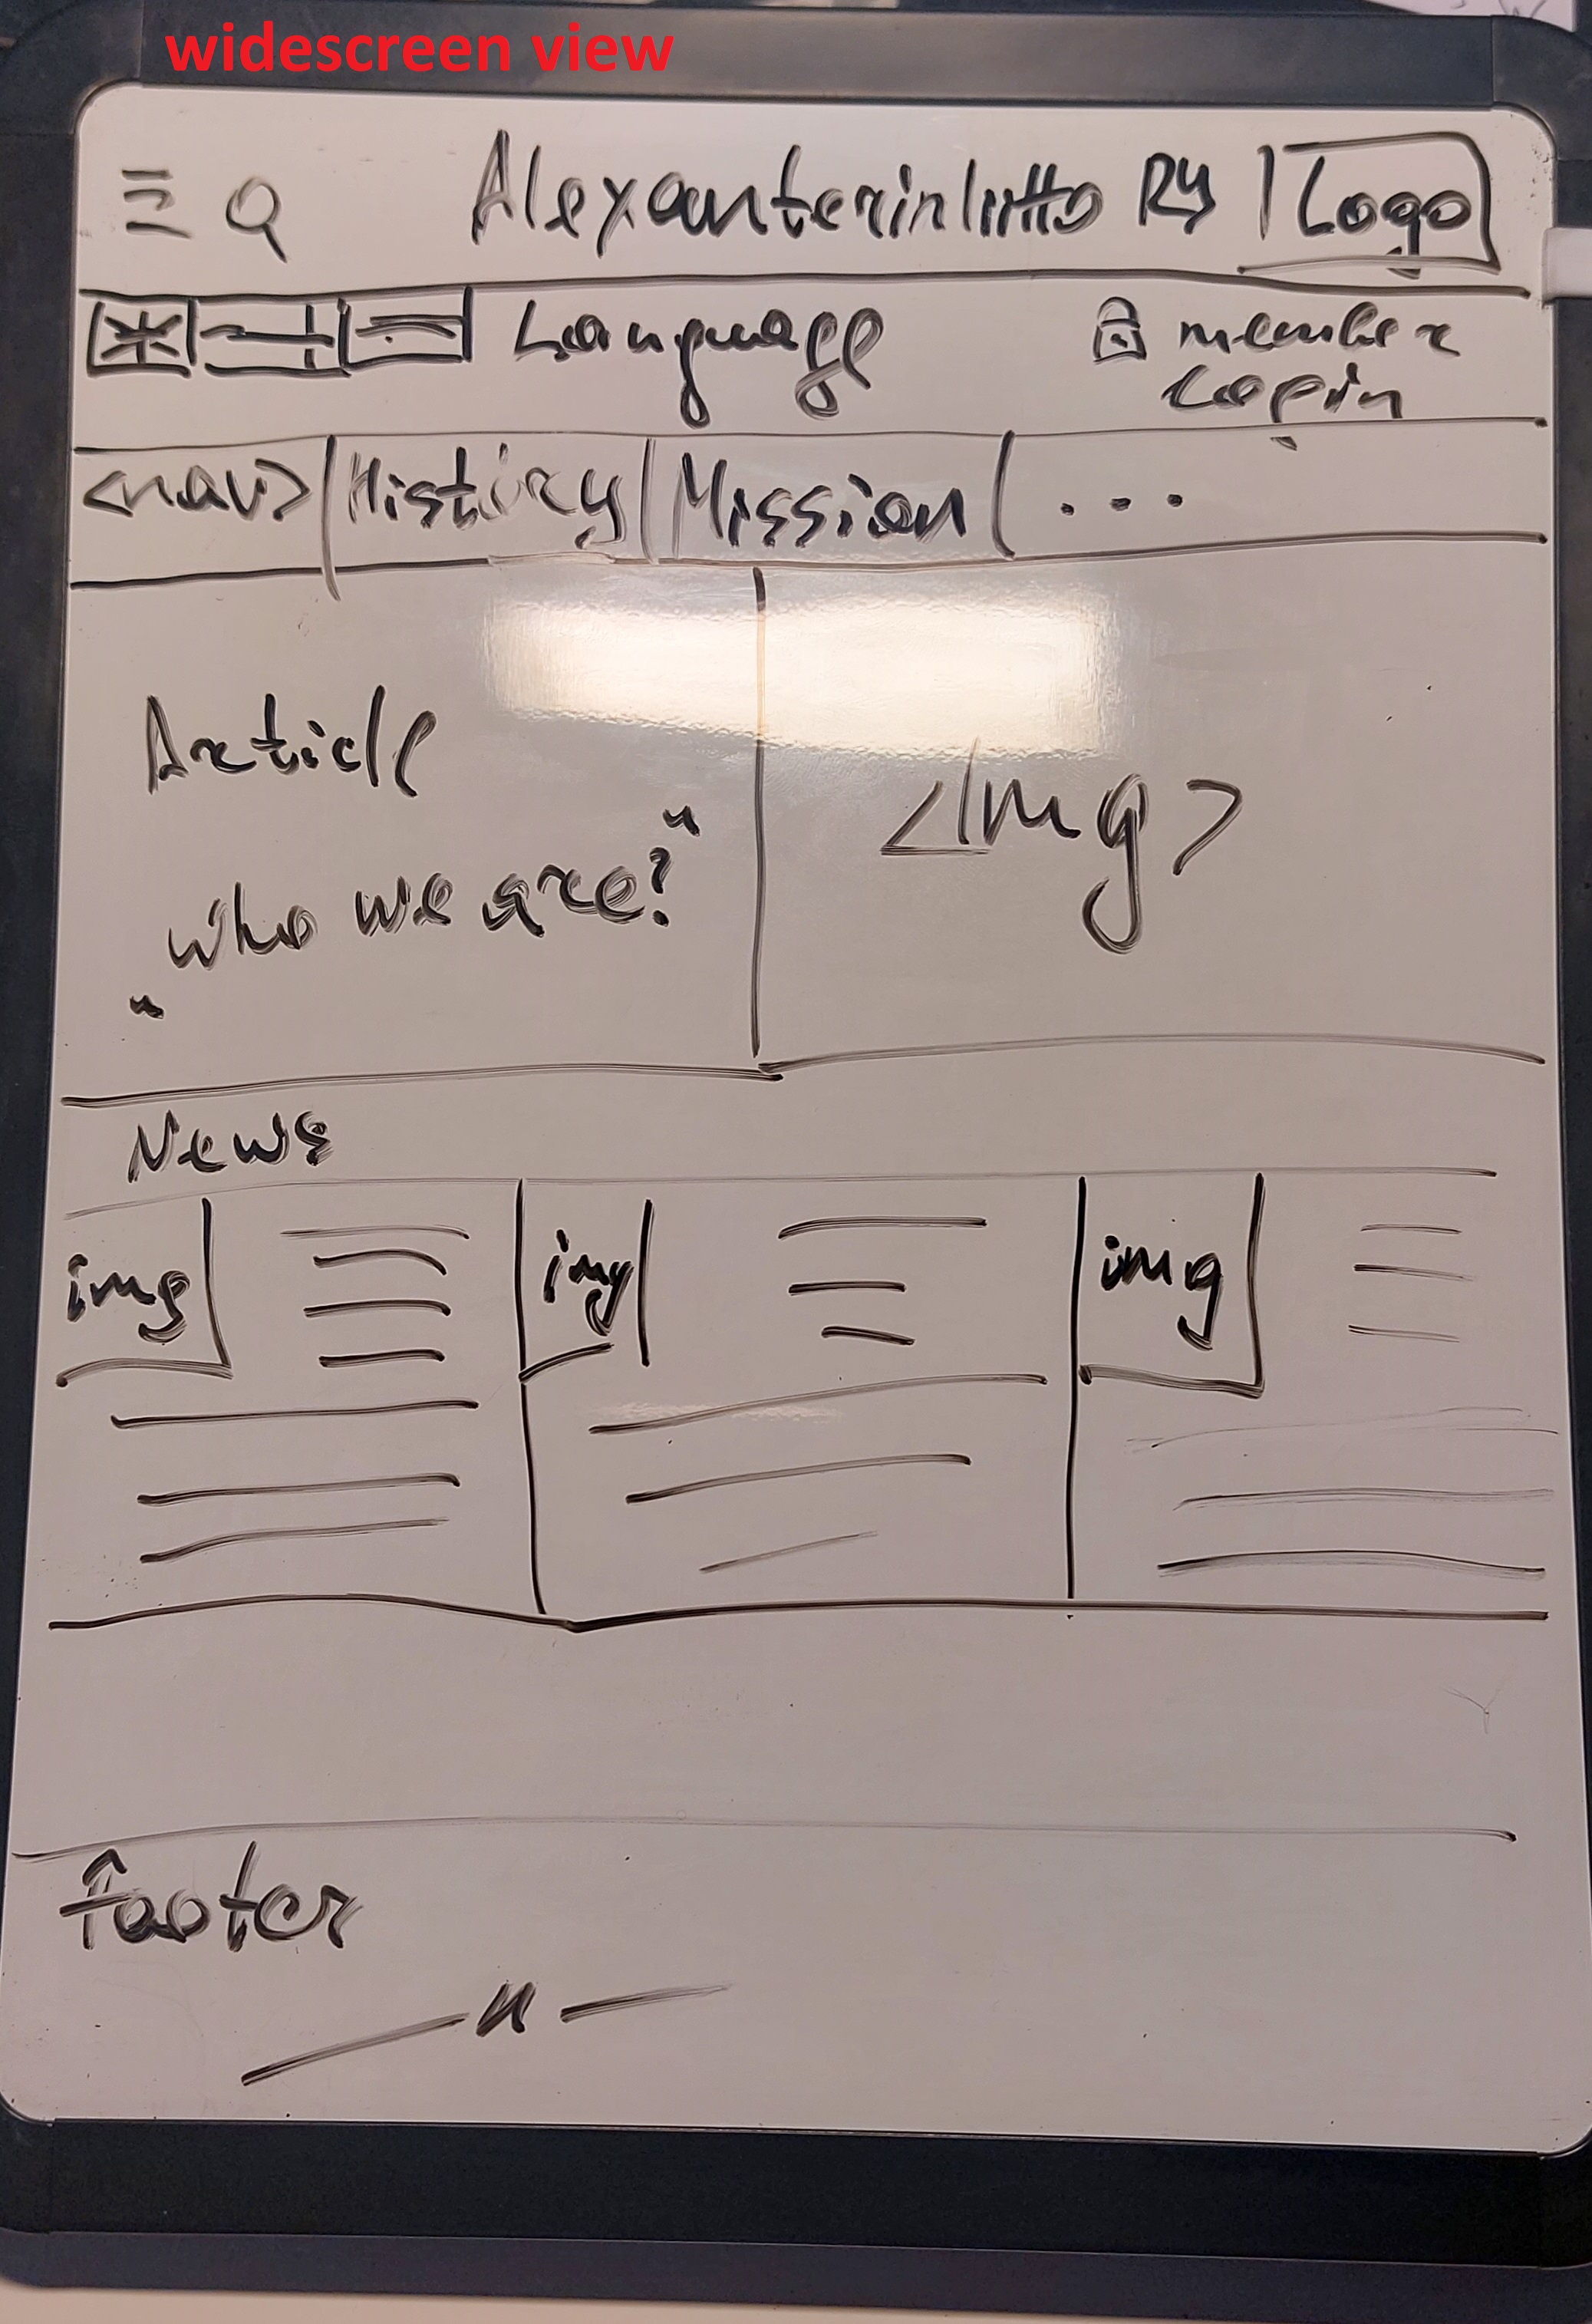 widescreen view
Alexanterinliitto Ry | Logo
Language member
Login
<nav> | History | Mission | ...
Article
"who we are?"
<Img>
News
img img img
Footer